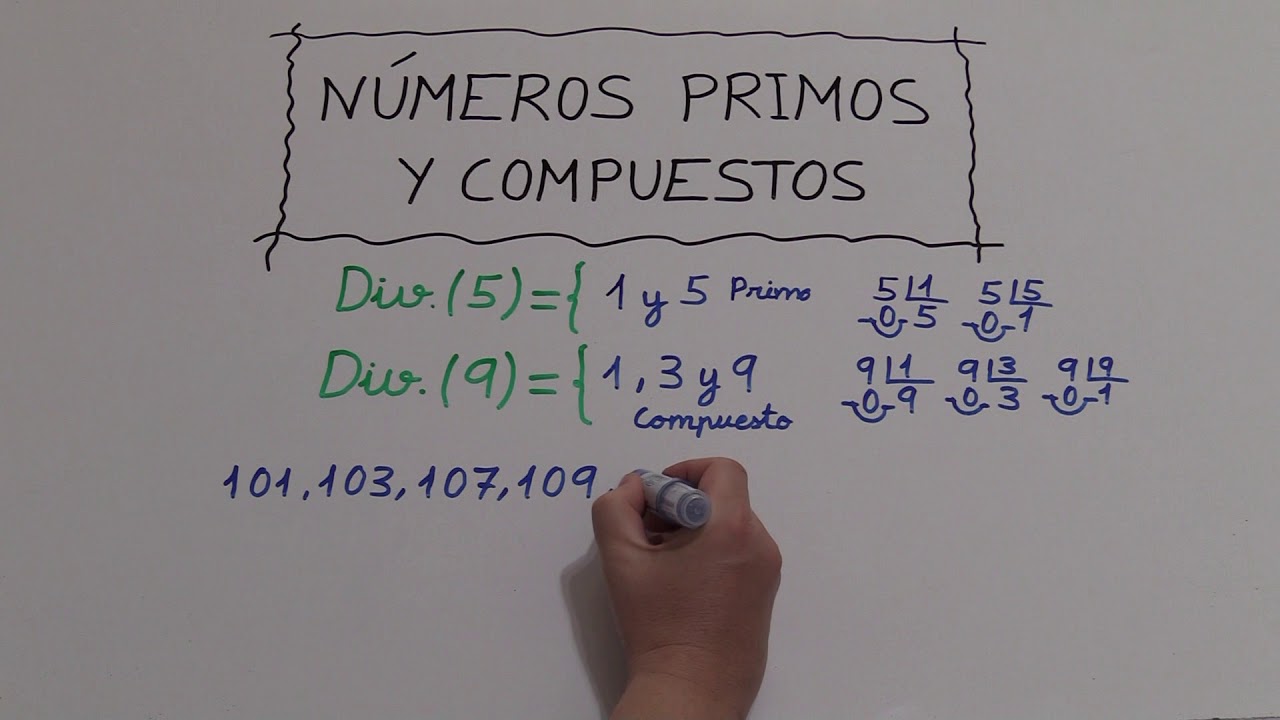 NÚMEROS PRIMOS
Y COMPUESTOS
Div. (5) = { 1 y 5 Primo
5 1 5 5
0 5 0 1
Div. (9) = { 1, 3 y 9
Compuesto
9 1 9 3 9 9
0 9 0 3 0 1
101, 103, 107, 109,